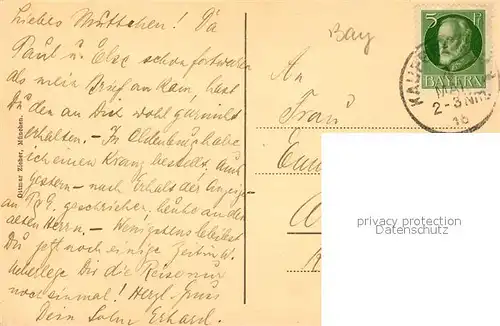 Liebes Muttchen! Da
Paul u. Else schon fort waren
als mein Brief an kam, hast
Du den an Dich wohl garnicht
erhalten. – In Oldenburg habe
ich einen Kranz bestellt, auch
gestern – nach Erhalt der Anzeige
an geschrieben, heute an den
alten Herrn, – Wenigstens bleibst
Du jetzt noch einige Zeit in W.
Ueberlege Dir die Reise nur
noch einmal! Herzl. Gruss
Dein Sohn Erhard.
Ottmar Zieher, München.
Bay
An
Frau
5 PF
BAYERN
MAI
2-3 NM
16
privacy protection
Datenschutz